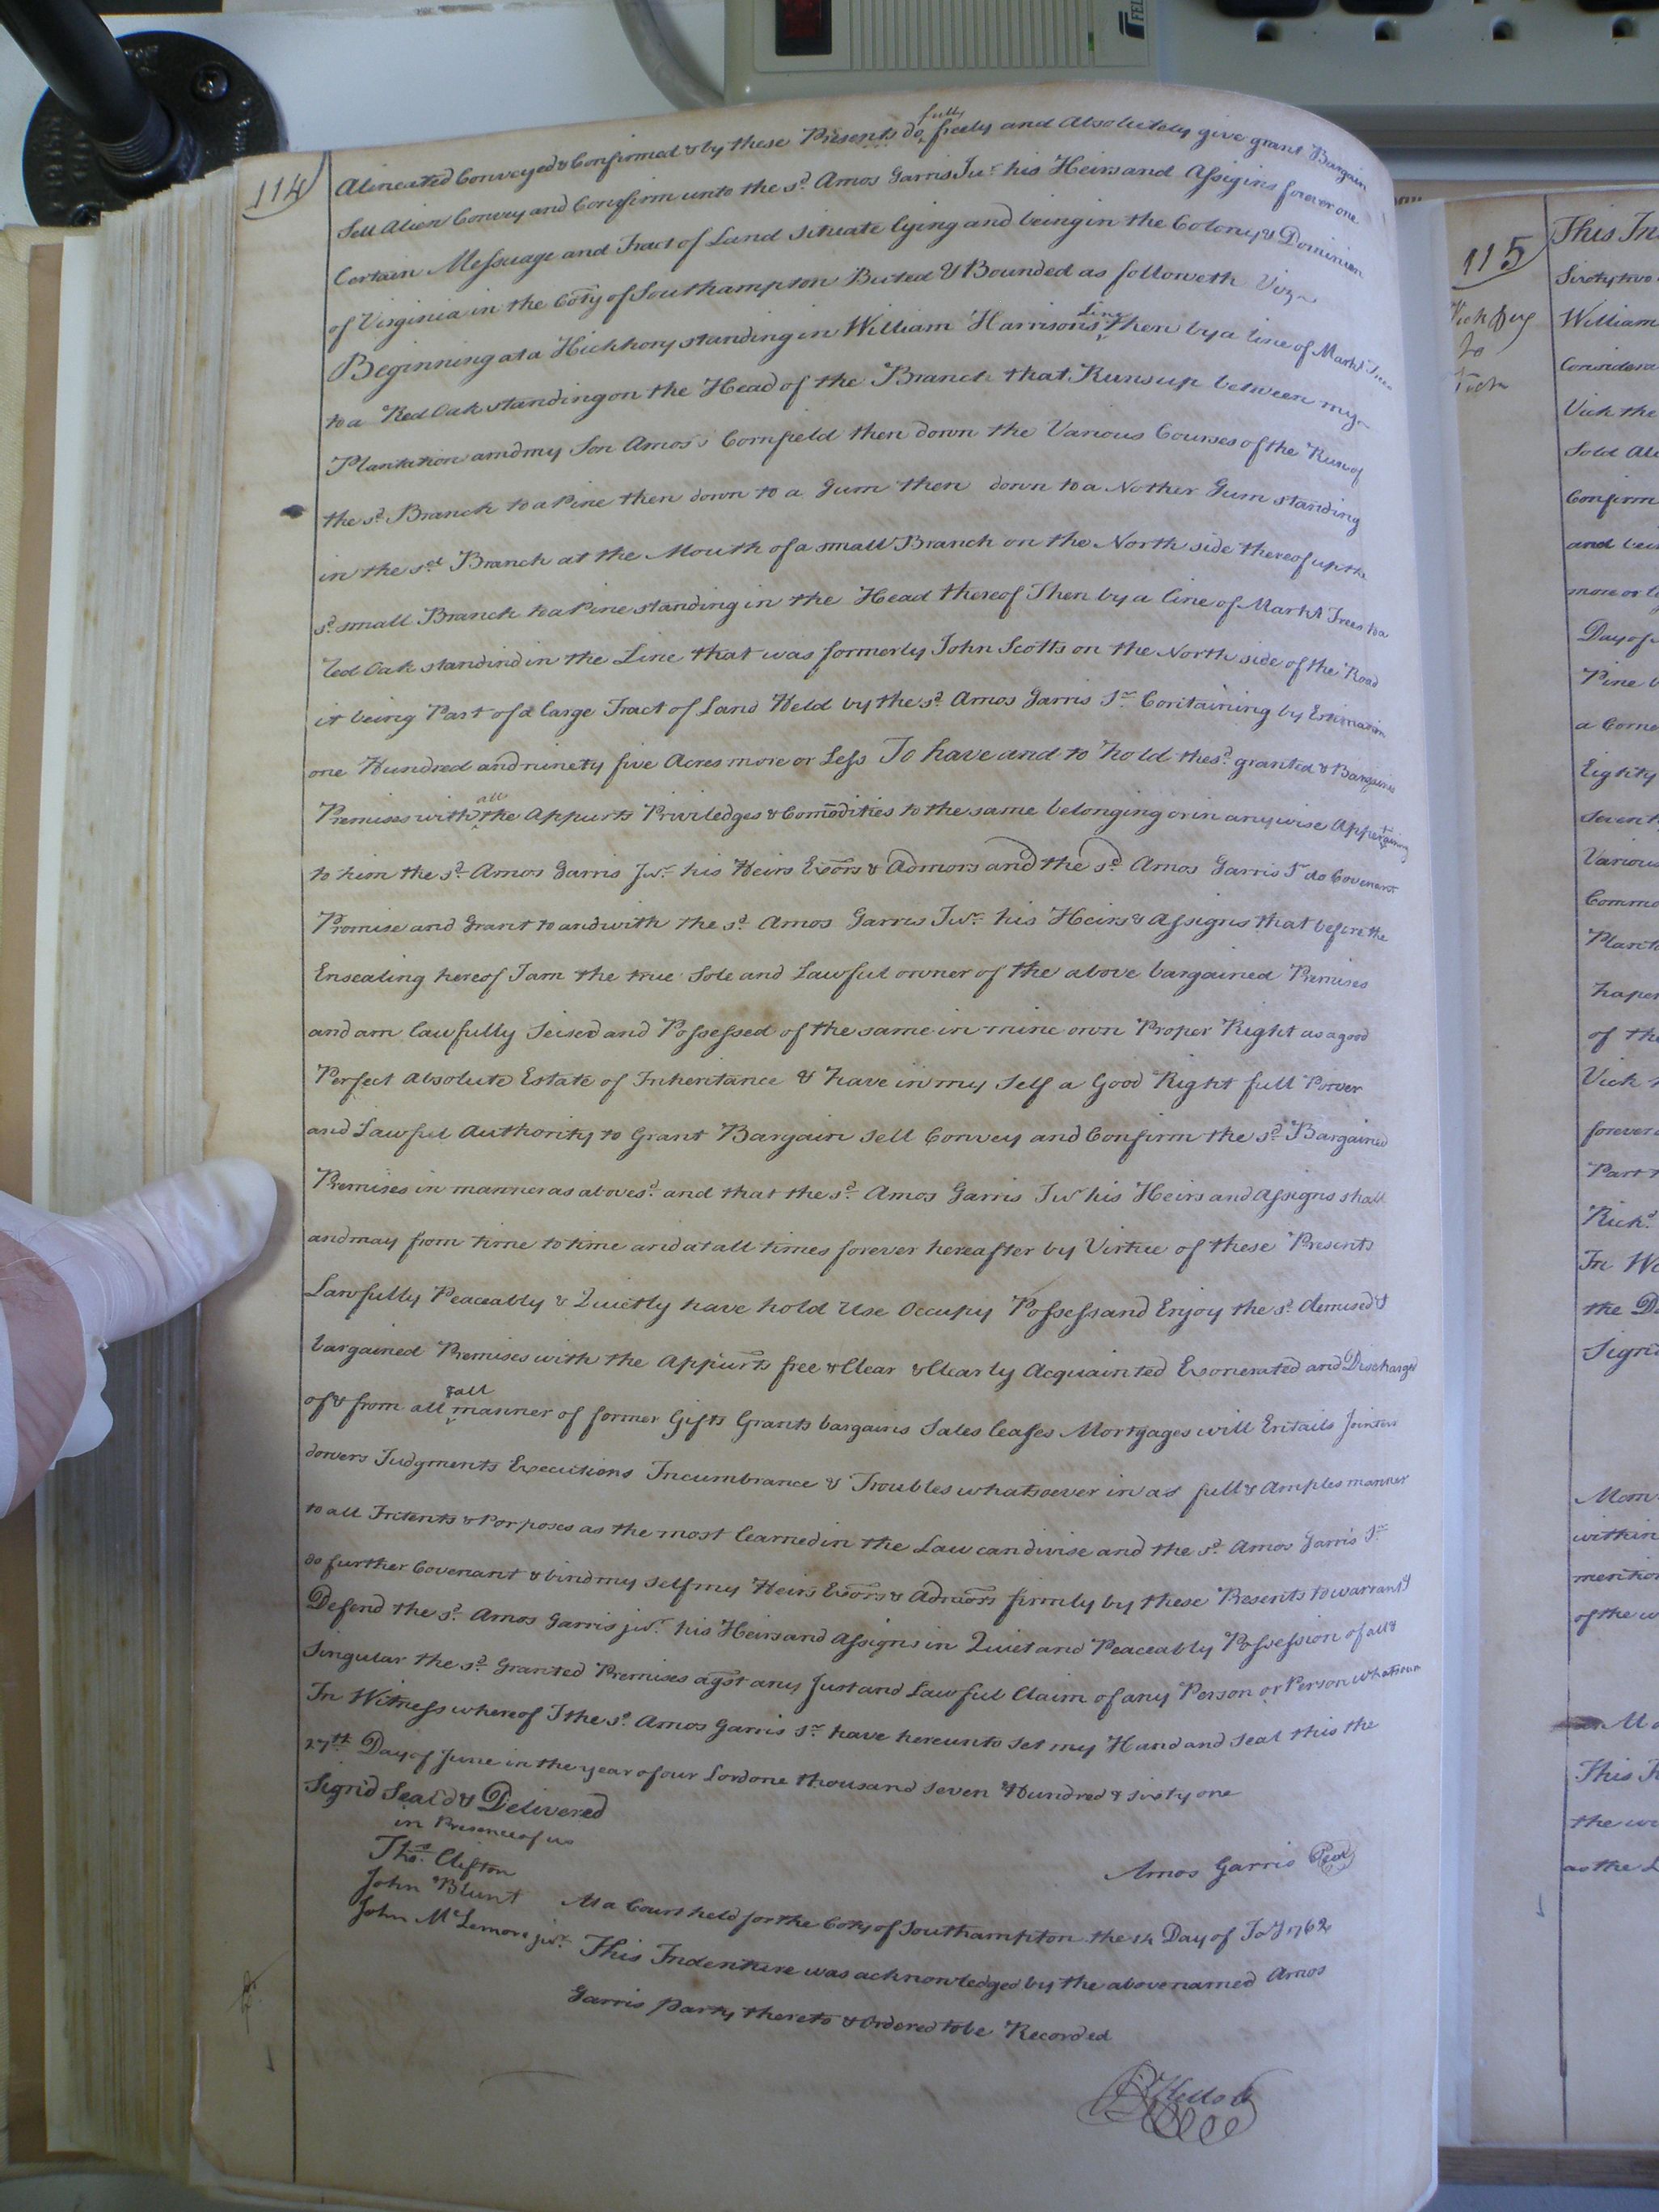 114
Alineated Conveyed & Confirmed & by these Presents do fully freely and Absolutely give grant Bargain
Sell Alien Convey and Confirm unto the sd Amos Garris Jur his Heirs and Assigns forever one
Certain Messuage and Tract of Land situate lying and being in the Colony & Dominion
of Virginia in the Coty of Southampton Buted & Bounded as followeth Viz
Beginning at a Hickhory standing in William Harrisons Line then by a line of Markt Trees
to a Red Oak standing on the Head of the Branch that Runs up between my
Plantation and my Son Amos's Cornfield then down the Various Courses of the Run of
the sd Branch to a Pine then down to a Gum then down to a Nother Gum standing
in the sd Branch at the Mouth of a small Branch on the North side thereof up the
sd small Branch to a Pine standing in the Head thereof Then by a line of Markt Trees to a
Red Oak standind in the Line that was formerly John Scotts on the North side of the Road
it being Part of a large Tract of Land Held by the sd Amos Garris Sr Containing by Estimation
one Hundred and ninety five Acres more or Less To have and to hold the sd granted & Bargained
Premises with all the Appurts Priviledges & Comodities to the same belonging or in anywise Appertaining
to him the sd Amos Garris Jur his Heirs Exors & Admors and the sd Amos Garris Sr do Covenant
Promise and Grant to and with the sd Amos Garris Jur his Heirs & Assigns that before the
Ensealing hereof I am the true Sole and Lawful owner of the above bargained Premises
and am lawfully Seised and Possessed of the same in mine own Proper Right as a good
Perfect Absolute Estate of Inheritance & have in my Self a Good Right full Power
and Lawful Authority to Grant Bargain Sell Convey and Confirm the sd Bargained
Premises in manner as abovesd and that the sd Amos Garris Jur his Heirs and Assigns shall
and may from time to time and at all times forever hereafter by Virtue of these Presents
Lawfully Peaceably & Quietly have hold Use Occupy Possess and Enjoy the sd demised &
bargained Premises with the Appurts free & Clear & Clearly Acquainted Exonerated and Discharged
of & from all & all manner of former Gifts Grants bargains Sales leases Mortgages will Entails Jointers
dowers Judgments Executions Incumbrance & Troubles whatsoever in as full & Amples manner
to all Intents & Porposes as the most learned in the Law can divise and the sd Amos Garris Sr
do further Covenant & bind my self my Heirs Exors & Admors firmly by these Presents to warrant &
Defend the sd Amos Garris jur his Heirs and Assigns in Quiet and Peaceably Possession of all &
Singular the sd Granted Premises agst any Just and Lawful Claim of any Person or Person whatsoever
In Witness whereof I the sd Amos Garris Sr have hereunto set my Hand and Seal this the
27th Day of June in the year of our Lord one thousand seven Hundred & sixty one
Signd Seald & Delivered
in Presence of us
Thos Clifton
John Blunt
John McLemore jur
Amos Garris Seal
At a Court held for the Coty of Southampton the 14 Day of Jay 1762
This Indenture was acknowledged by the abovenamed Amos
Garris Party thereto & Ordered to be Recorded
115
to
This In
Sixty two
William
Considera
Vick the
Sold Ali
Confirm
and bei
more or l
Day of
Pine b
a Corne
Eighty
Various
Commo
Plant
of the
Vick
forever
Part
Richd
In Wi
the D
Signd
Mem
within
mention
of the w
This
the w
as the